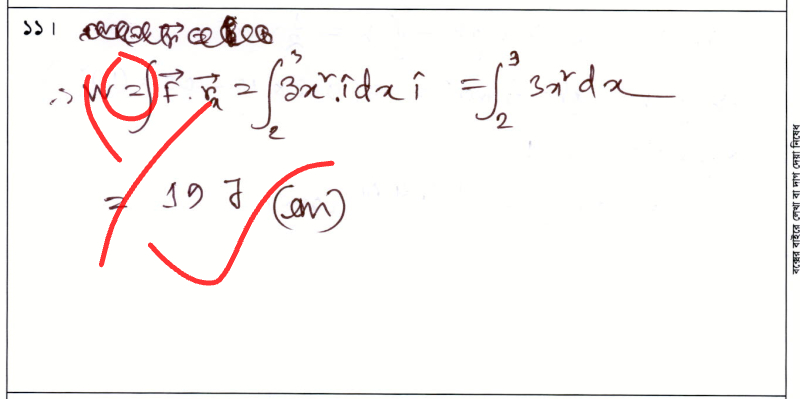 ১১।
∴ W = ∫ F⃗ . r⃗ₓ = ∫₂³ 3x² . î dx î = ∫₂³ 3x² dx
= 19 J (Ans)
বক্সের বাইরে লেখা বা দাগ দেয়া নিষেধ